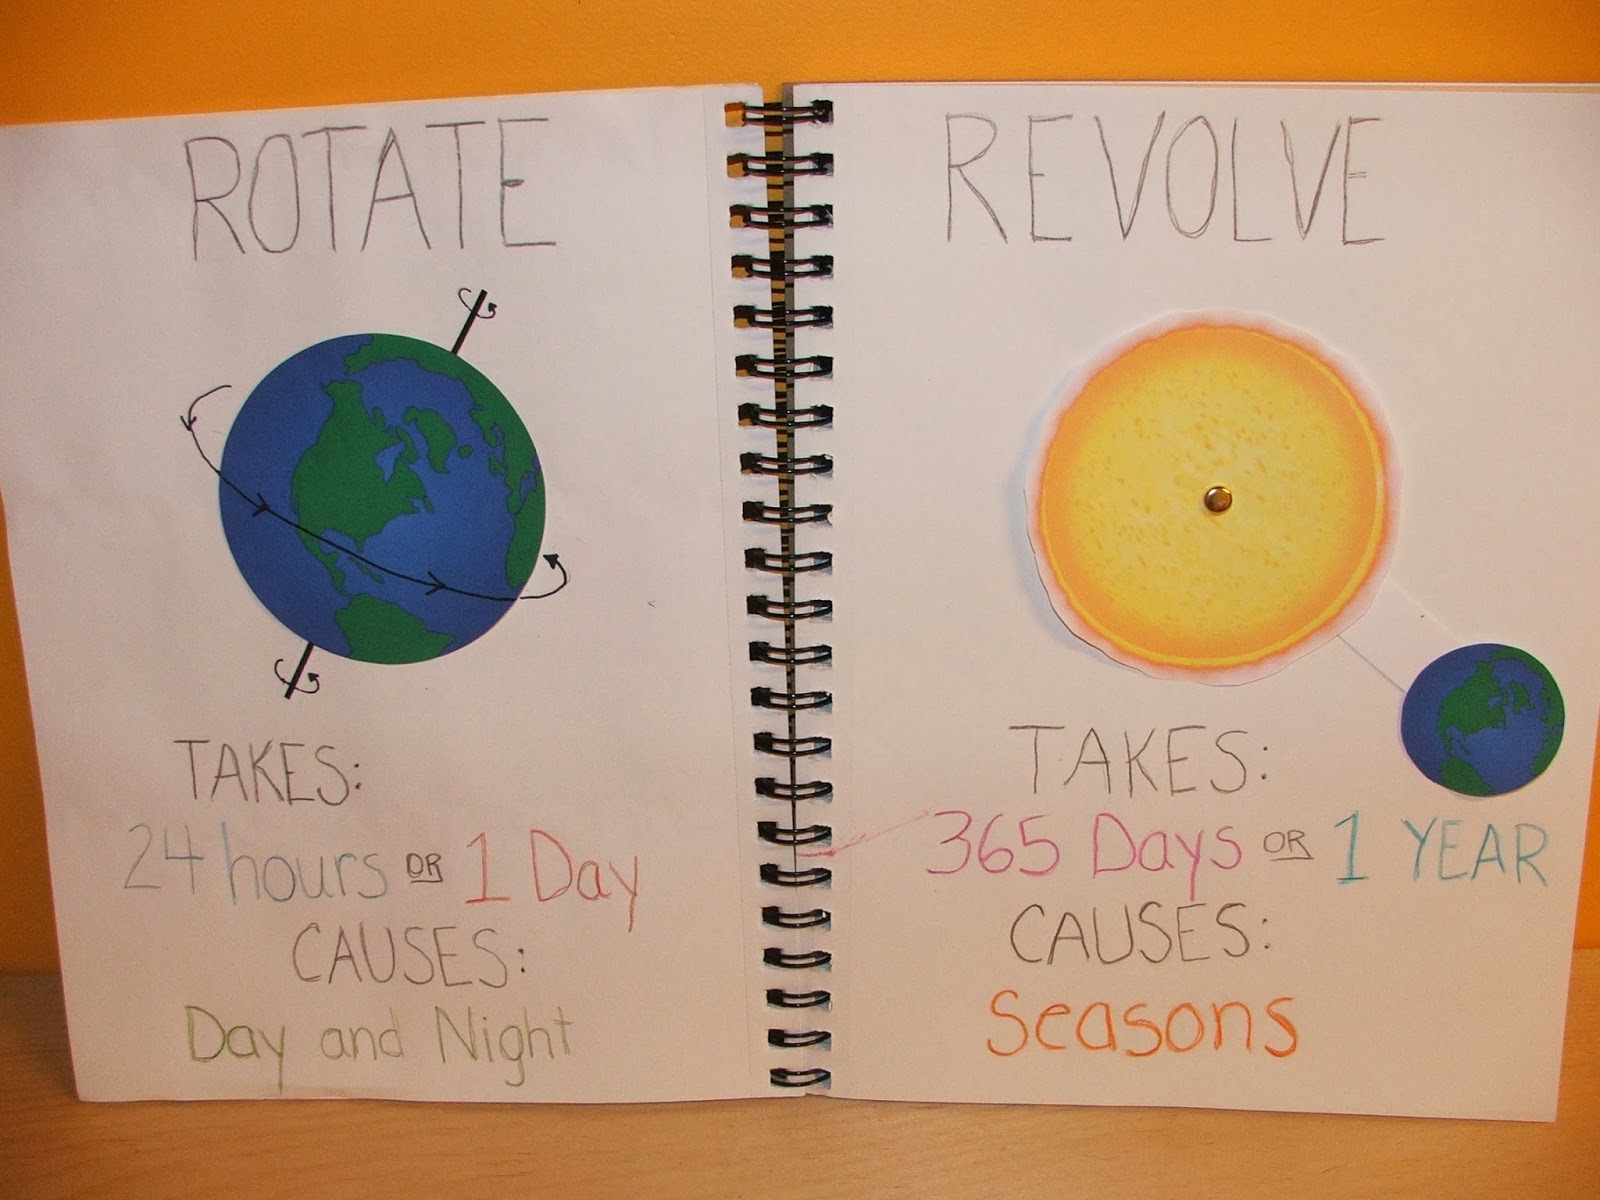 ROTATE
TAKES:
24 hours OR 1 Day
CAUSES:
Day and Night
REVOLVE
TAKES:
365 Days OR 1 YEAR
CAUSES:
Seasons